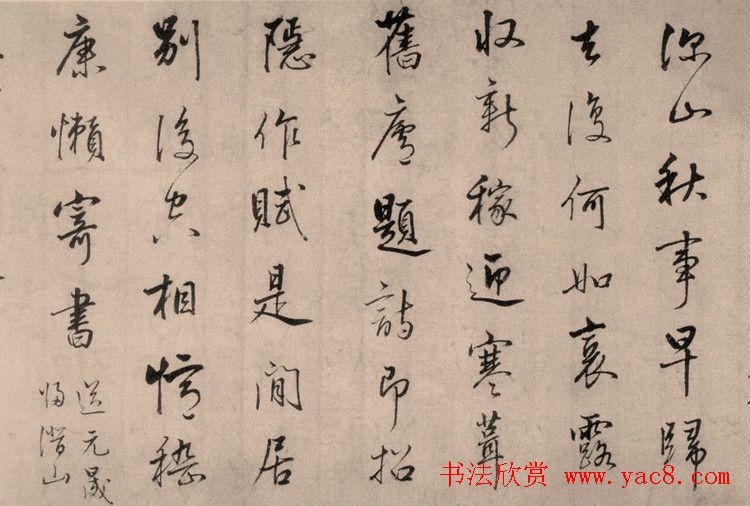 深山秋事早歸
去復何如裛露
收新稼迎寒葺
舊廬題詩即招
隱作賦是閒居
別後空相憶嵇
康懶寄書
送元晟
歸潛山
书法欣赏 www.yac8.com